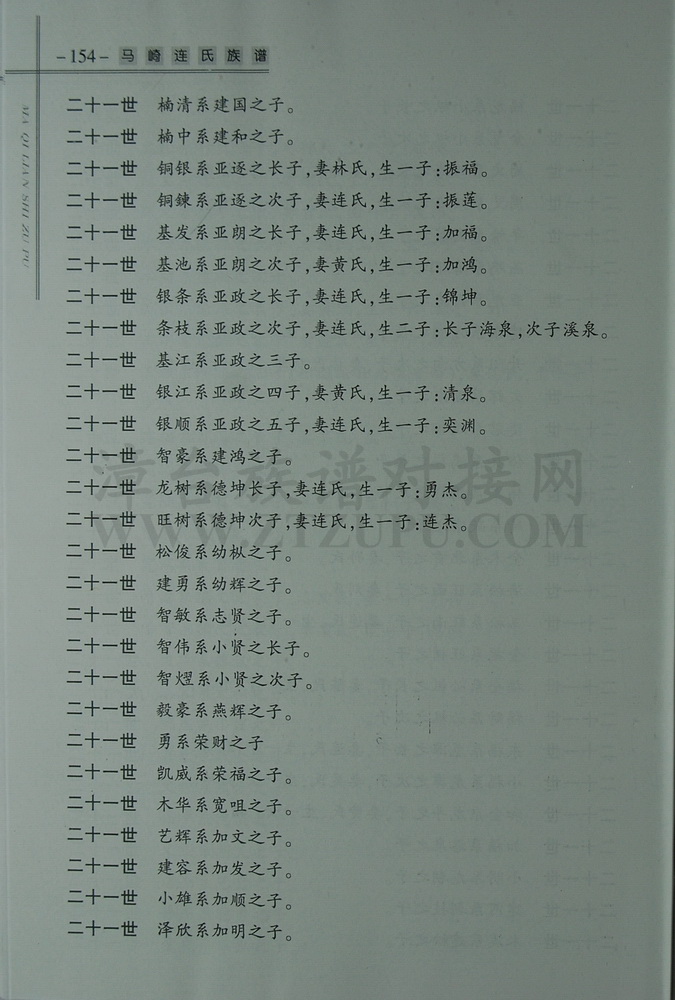 -154- 马崎连氏族谱
MA QI LIAN SHI ZU PU
二十一世 楠清系建国之子。
二十一世 楠中系建和之子。
二十一世 铜银系亚逐之长子,妻林氏,生一子:振福。
二十一世 铜鍊系亚逐之次子,妻连氏,生一子:振莲。
二十一世 基发系亚朗之长子,妻连氏,生一子:加福。
二十一世 基池系亚朗之次子,妻黄氏,生一子:加鸿。
二十一世 银条系亚政之长子,妻连氏,生一子:锦坤。
二十一世 条枝系亚政之次子,妻连氏,生二子:长子海泉,次子溪泉。
二十一世 基江系亚政之三子。
二十一世 银江系亚政之四子,妻黄氏,生一子:清泉。
二十一世 银顺系亚政之五子,妻连氏,生一子:奕渊。
二十一世 智豪系建鸿之子。
二十一世 龙树系德坤长子,妻连氏,生一子:勇杰。
二十一世 旺树系德坤次子,妻连氏,生一子:连杰。
二十一世 松俊系幼枞之子。
二十一世 建勇系幼辉之子。
二十一世 智敏系志贤之子。
二十一世 智伟系小贤之长子。
二十一世 智熠系小贤之次子。
二十一世 毅豪系燕辉之子。
二十一世 勇系荣财之子
二十一世 凯威系荣福之子。
二十一世 木华系宽咀之子。
二十一世 艺辉系加文之子。
二十一世 建容系加发之子。
二十一世 小雄系加顺之子。
二十一世 泽欣系加明之子。
漳台族谱对接网
WWW.ZTZUPU.COM